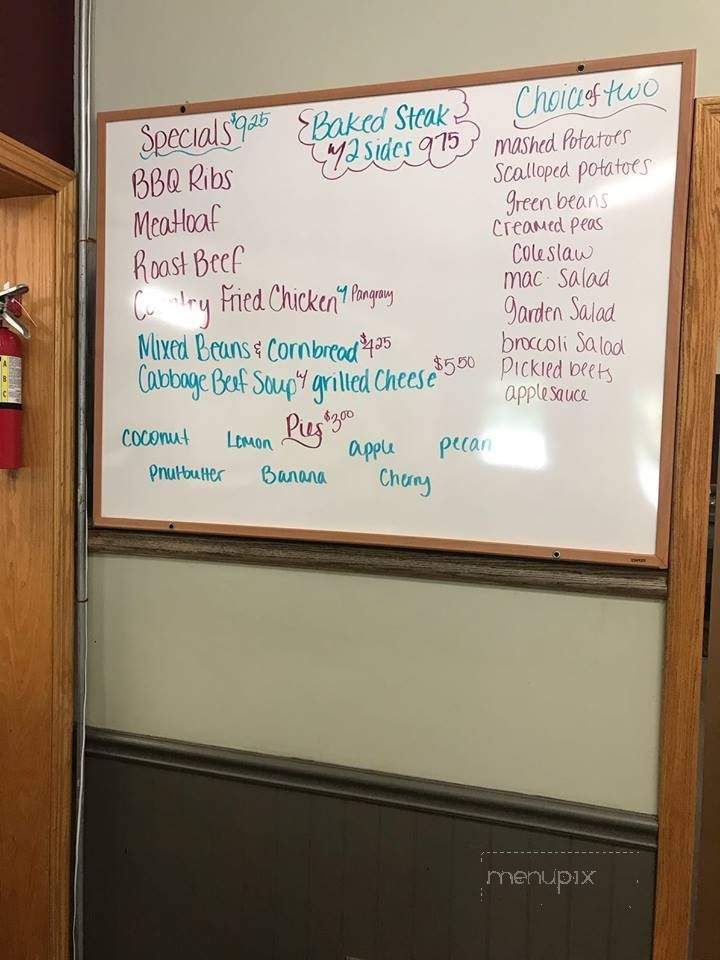 Specials $925
BBQ Ribs
Meatloaf
Roast Beef
Country Fried Chicken w/ Pangravy
Mixed Beans & Cornbread $425
Cabbage Beef Soup w/ grilled Cheese $5.50
Baked Steak
w/ 2 sides 975
Choice of two
mashed Potatoes
Scalloped potatoes
green beans
creamed peas
Coleslaw
mac. Salad
garden Salad
broccoli Salad
Pickled beets
applesauce
Pies $3.00
coconut Lemon apple pecan
Pnutbutter Banana Cherry
A
B
C
menupix